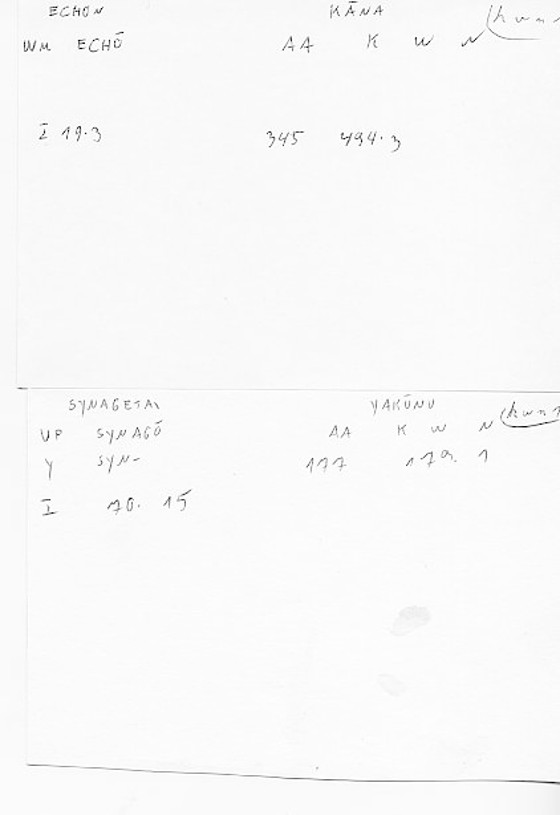 ECHON KĀNA
WM ECHŌ AA K W N
I 19.3 345 494.3
SYNAGETAI YAKŪNU
VP SYNAGŌ AA K W N
Y SYN- 177 179. 1
I 70. 15